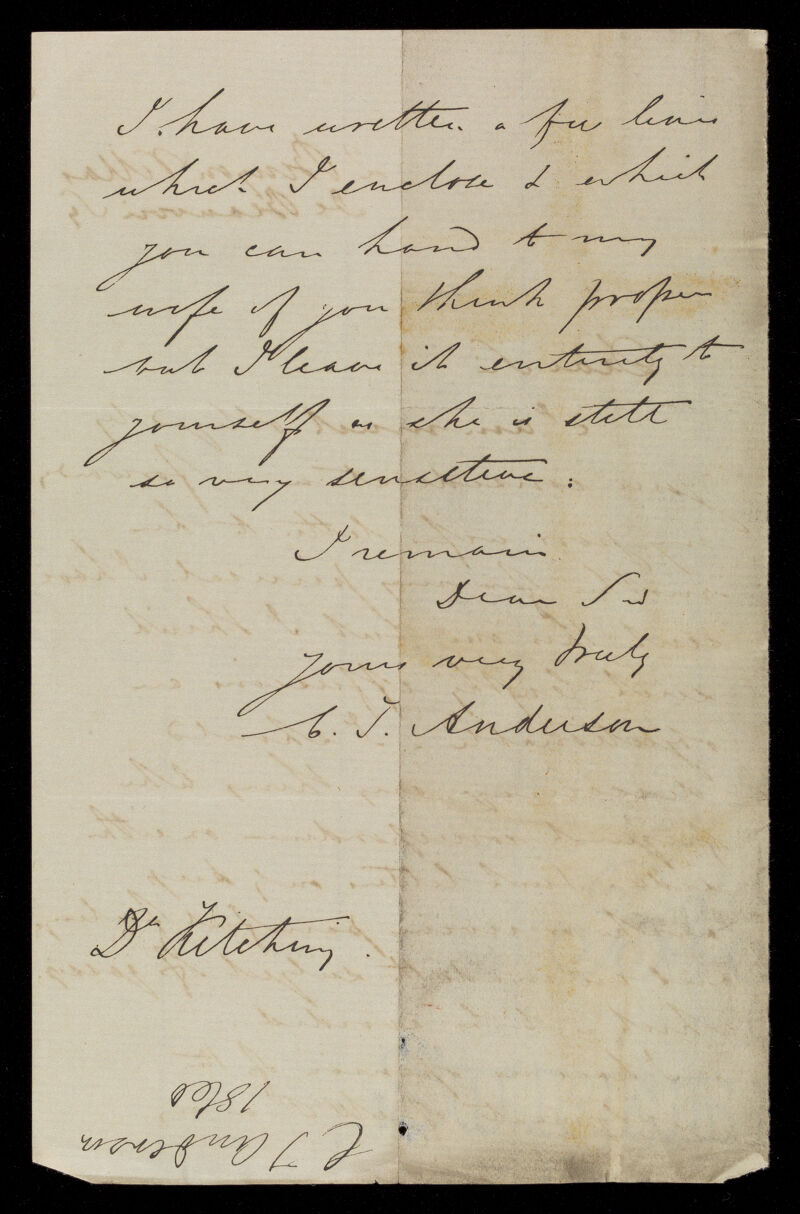 I have written a few lines
which I enclose & which
you can hand to my
wife if you think proper
but I leave it entirely to
yourself as she is still
so very sensitive:
I remain
Dear Sir
yours very truly
C. T. Anderson
Dr Kitching.
C T Anderson
1866